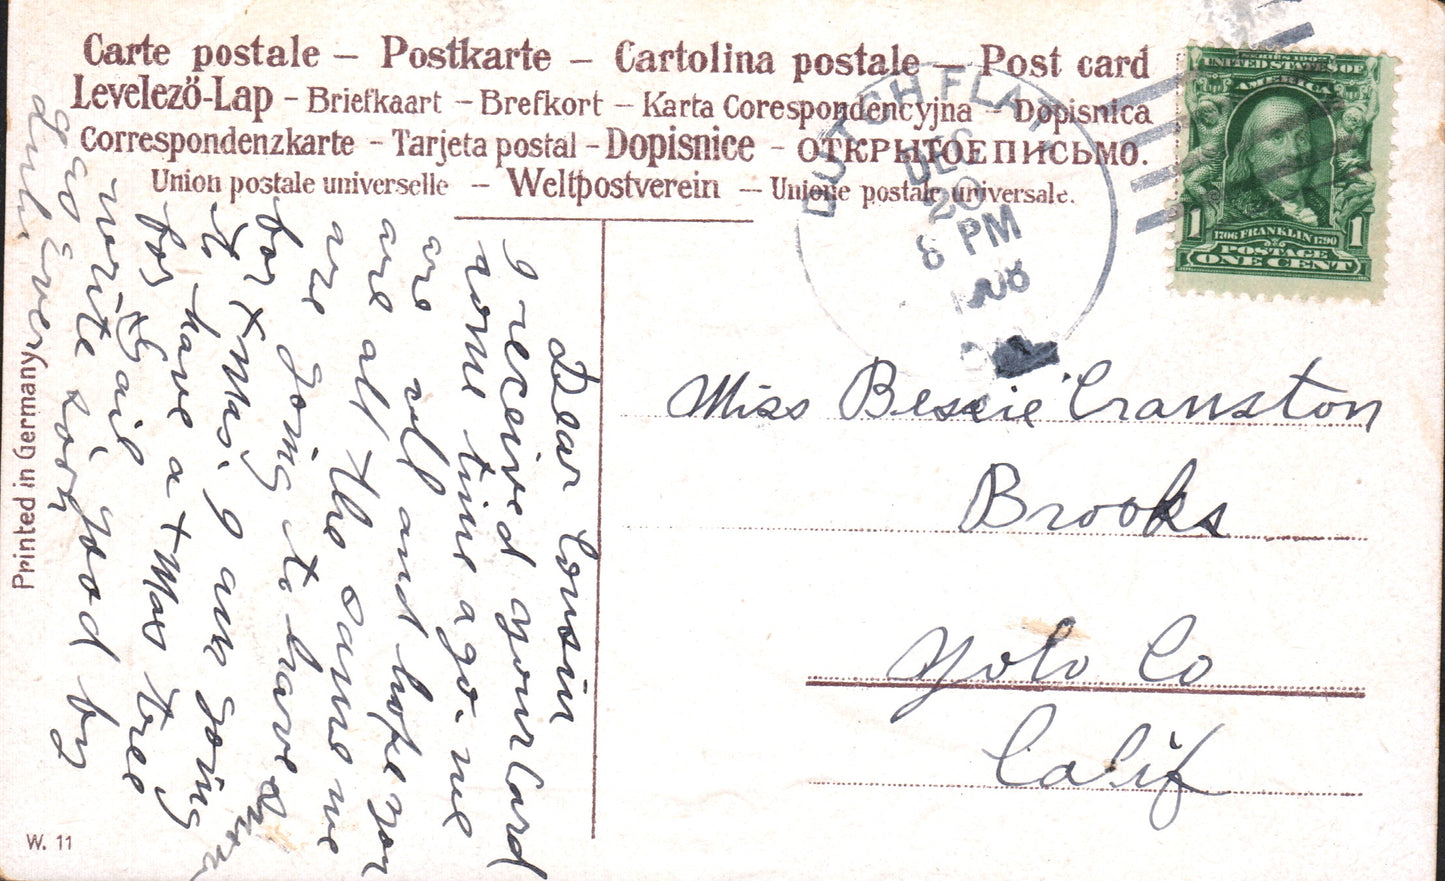 Carte postale – Postkarte – Cartolina postale – Post card
Levelező-Lap – Briefkaart – Brefkort – Karta Corespondencyjna – Dopisnica
Correspondenzkarte – Tarjeta postal – Dopisnice – ОТКРЫТОЕ ПИСЬМО.
Union postale universelle – Weltpostverein – Unione postale universale.
DUTCH FLAT
DEC
20
8 PM
1908
UNITED STATES OF
AMERICA
1706 FRANKLIN 1790
POSTAGE
1 ONE CENT 1
Miss Bessie Cranston
Brooks
Yolo Co
Calif
Dear Cousin
I received your Card
some time ago. we
are well and hope you
are all the same we
are going to have snow
for XMas, I am going
to have a XMas tree
for Gail
write soon, good by
as Ever
Printed in Germany
W. 11